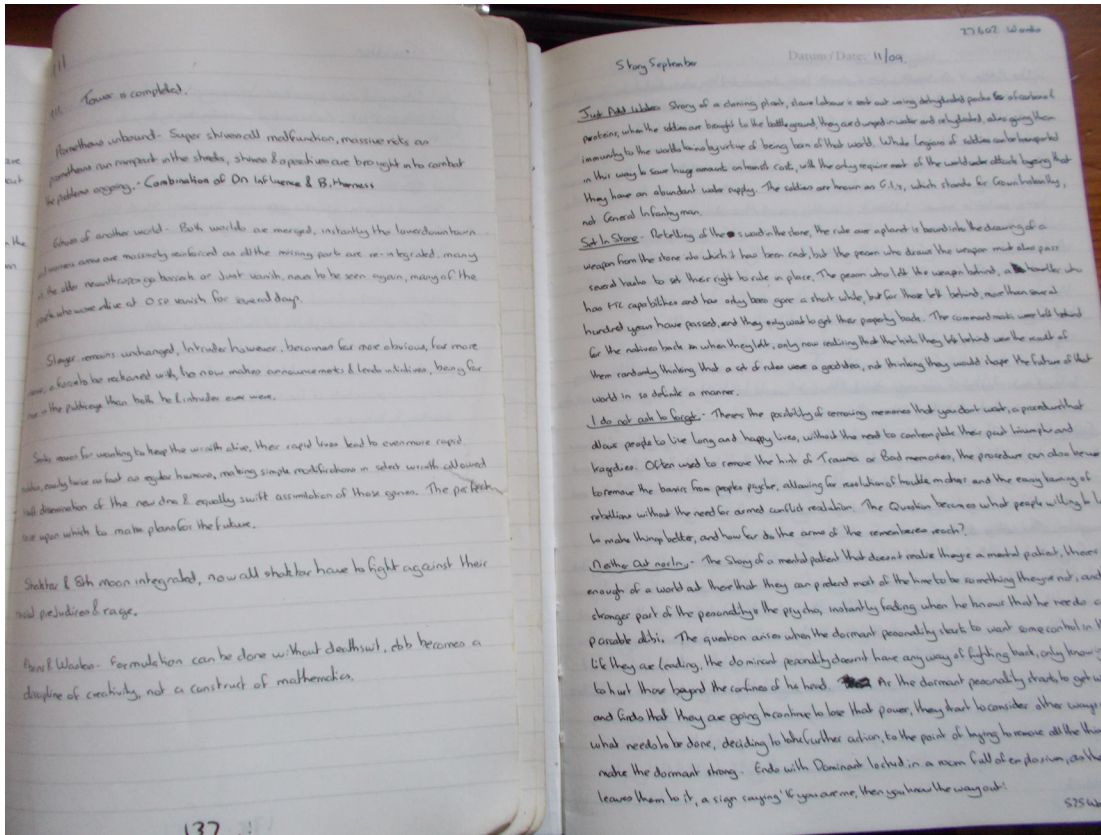 Tower is completed.
Prometheus unbound - Super shiver all malfunction, massive risks on
run rampant in the streets, are brought in to combat
the problems ongoing. - Combination of Dr Influence & B. Harness
Echoes of another world - Both worlds are merged, instantly the lower downtown
areas are massively reinforced as all the missing parts are re-integrated, many
of the older or Just vanish, never to be seen again, many of the
who were alive at vanish for several days.
remains unchanged, Intruder however, becomes far more obvious, far more
a force to be reckoned with, he now makes announcements & lends initiatives, being far
more in the public eye than both he & intruder ever were.
reason for wanting to keep the wraith alive, their rapid lives lend to even more rapid
easily twice as fast as regular humans, making simple modifications in select wraith allowed
dissemination of the new dna & equally swift assimilation of those genes. The perfect
base upon which to make plans for the future.
& 8th moon integrated, now all have to fight against their
prejudices & rage.
formulation can be done without ebb becomes a
discipline of creativity, not a construct of mathematics.
137
27602 Words
Story September Datum / Date: 11/09.
Just Add Water. Story of a cloning plant, slave labour is sent out using dehydrated packs of carbon &
proteins, when the soldiers are brought to the battleground, they are dumped in water and rehydrated, also giving them
immunity to the worlds toxins by virtue of being born of that world. Whole legions of soldiers can be transported
in this way to save huge amounts on transit cost, with the only requirement of the world under attack being that
they have an abundant water supply. The soldiers are known as G.I.s, which stands for Grown Industrially,
not General Infantryman.
Set In Stone - Retelling of the sword in the stone, the rule over a planet is bound into the drawing of a
weapon from the stone into which it has been cast, but the person who draws the weapon must also pass
several tasks to set their right to rule in place. The person who left the weapon behind, a traveller who
has capabilities and has only been gone a short while, but for those left behind, more than several
hundred years have passed, and they only want to get their property back. The commandments were left behind
for the natives back when they left, only now realising that the kids they left behind were the result of
them randomly thinking that a set of rules were a good idea, not thinking they would shape the future of that
world in so definite a manner.
I do not ask to forget - There's the possibility of removing memories that you dont want, a procedure that
allows people to live long and happy lives, without the need to contemplate their past triumphs and
tragedies. Often used to remove the hint of Trauma or Bad memories, the procedure can also be used
to remove the barriers from peoples psyche, allowing for resolution of trouble makers and the easy taming of
rebellions without the need for armed conflict resolution. The Question becomes what people willing to
to make things better, and how far do the arms of the rememberers reach?
Neither Out nor In, - The Story of a mental patient that doesnt realise theyre a mental patient, theres
enough of a world out there that they can pretend most of the time to be something they're not, and
stronger part of the personality is the psycho, instantly fading when he knows that he needs a
passable alibi. The question arises when the dormant personality starts to want some control in the
life they are leading, the dominant personality doesnt have any way of fighting back, only knowing
to hurt those beyond the confines of his head. As the dormant personality starts, to get
and finds that they are going to continue to lose that power, they start to consider other ways
what needs to be done, deciding to take further action, to the point of trying to remove all the things
make the dormant strong. Ends with Dominant locked in a room full of explosives, as the
leaves them to it, a sign saying 'If you are me, then you know the way out'.
525